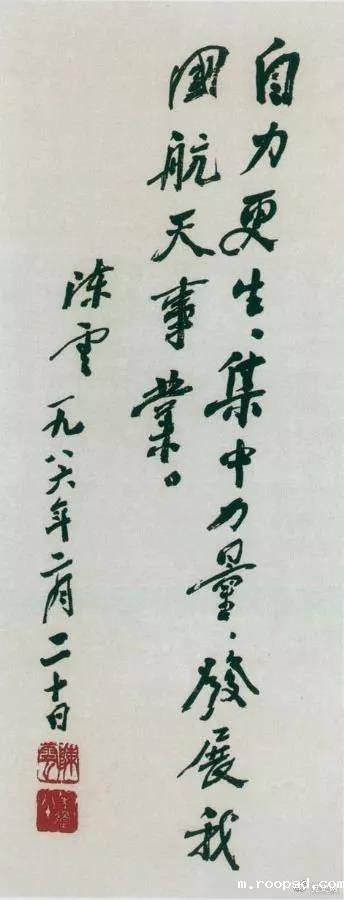 自力更生、集中力量、發展我
國航天事業。
陳雲一九八六年二月二十日
陳雲
m.roopad.com